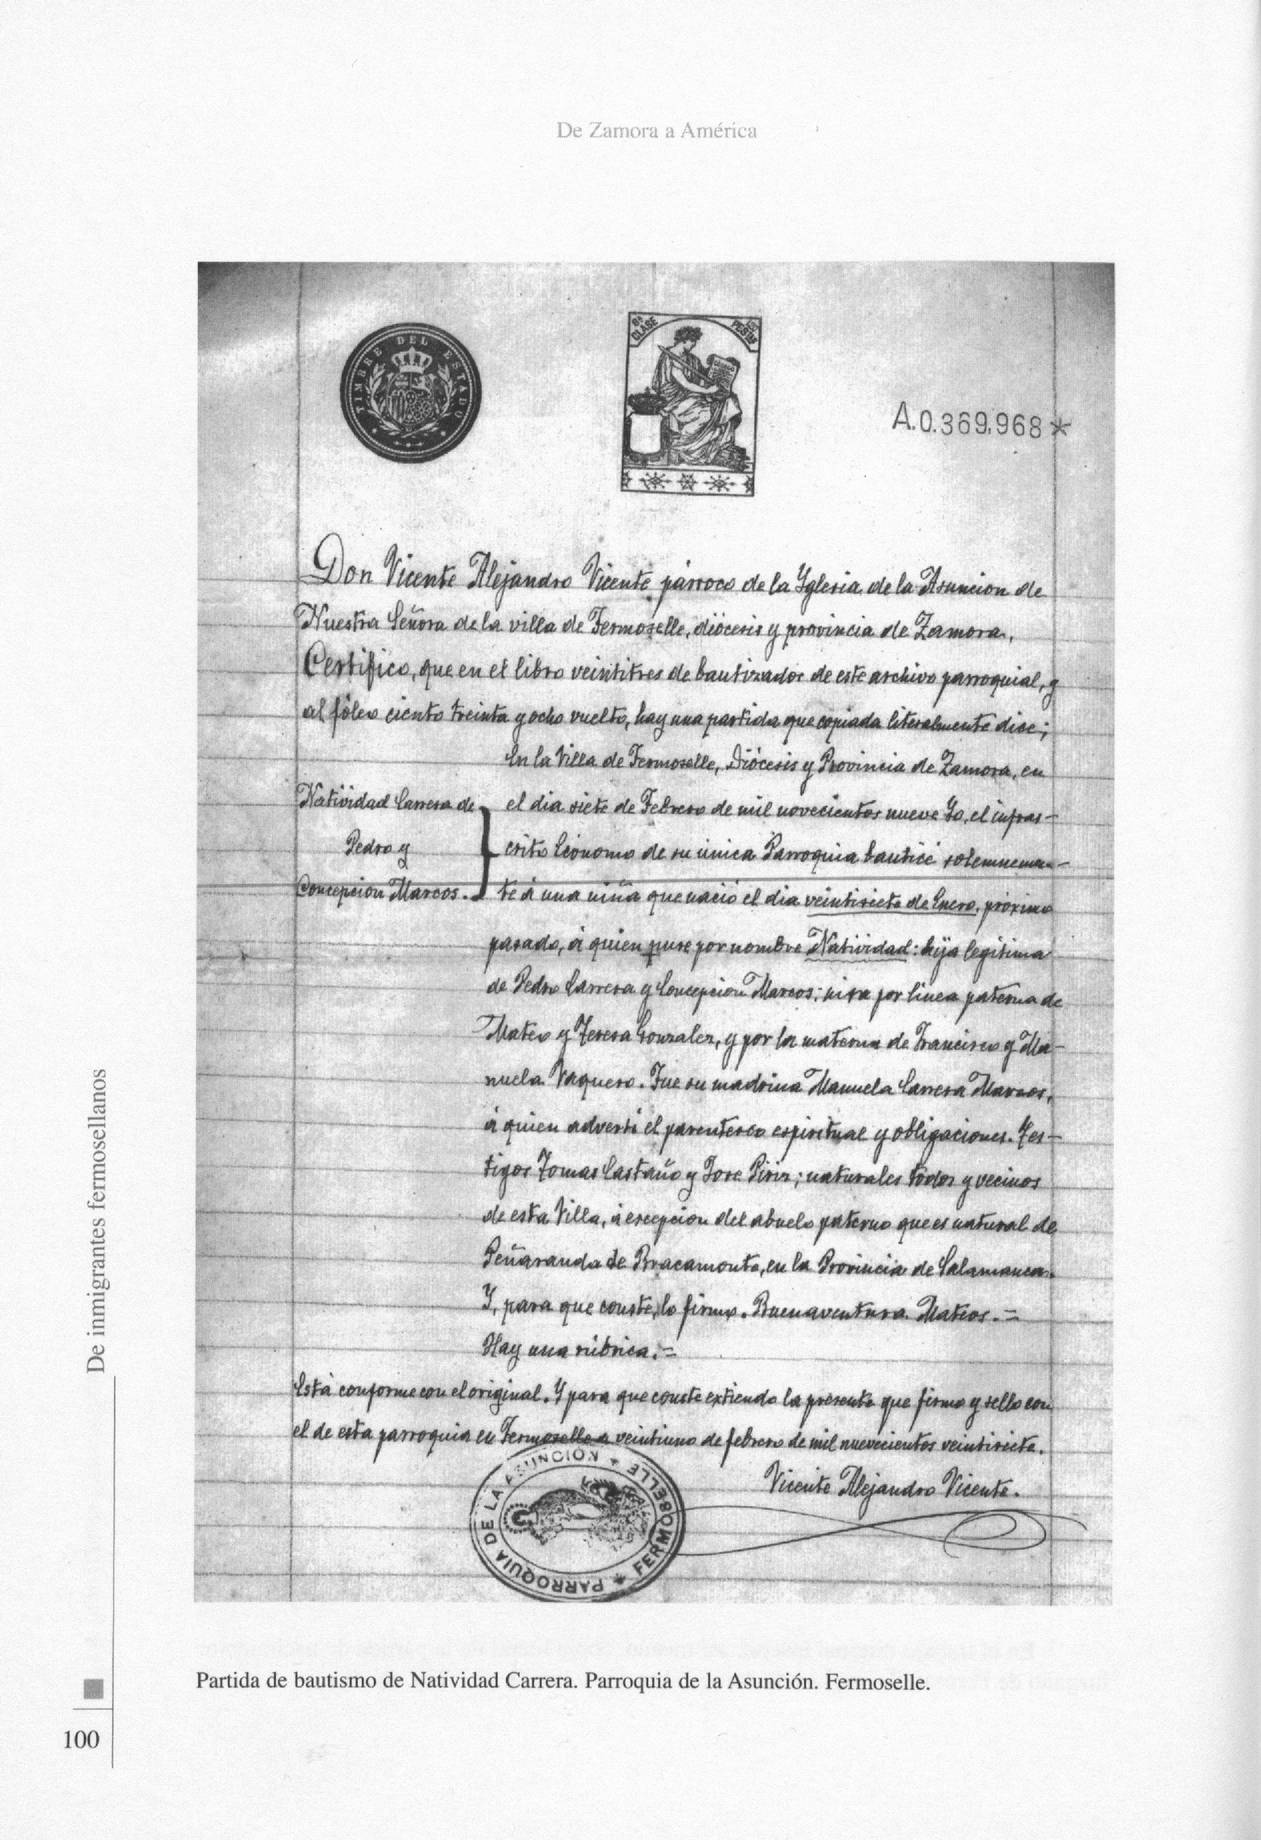 De Zamora a América
TIMBRE DEL ESTADO
8ª CLASE
PESTAS
A.0.369.968*
Don Vicente Alejandro Vicente párroco de la Yglesia de la Asuncion de
Nuestra Señora de la villa de Fermoselle, diócesis y provincia de Zamora,
Certifico, que en el libro veintitres de bautizados de este archivo parroquial, y
al fóleo ciento treinta y ocho vuelto, hay una partida que copiada literalmente dice;
En la Villa de Fermoselle, Diócesis y Provincia de Zamora, en
Natividad Carrera de
Pedro y
Concepción Marcos.
el dia siete de Febrero de mil novecientos nueve Yo, el infras-
crito Ecónomo de su única Parroquia bauticé solemnemen-
te á una niña que nació el dia veintisiete de Enero, próximo
pasado, á quien puse por nombre Natividad: hija legítima
de Pedro Carrera y Concepcion Marcos; nieta por linea paterna de
Mateo y Teresa Gonzalez, y por la materna de Francisco y Ma-
nuela Vaquero. Fue su madrina Manuela Carrera Marcos,
á quien advertí el parentesco espiritual y obligaciones. Tes-
tigos Tomas Castaño y Jose Piriz; naturales todos y vecinos
de esta Villa, á escepcion del abuelo paterno que es natural de
Peñaranda de Bracamonte, en la Provincia de Salamanca.
Y, para que conste, lo firmo. Buenaventura Mateos.=
Hay una rúbrica.=
Está conforme con el original. Y para que conste extiendo la presente que firmo y sello con
el de esta parroquia en Fermoselle a veintiuno de febrero de mil nuevecientos veintisiete.
Vicente Alejandro Vicente.
PARROQUIA DE LA ASUNCION * FERMOSELLE *
Partida de bautismo de Natividad Carrera. Parroquia de la Asunción. Fermoselle.
De inmigrantes fermosellanos
100